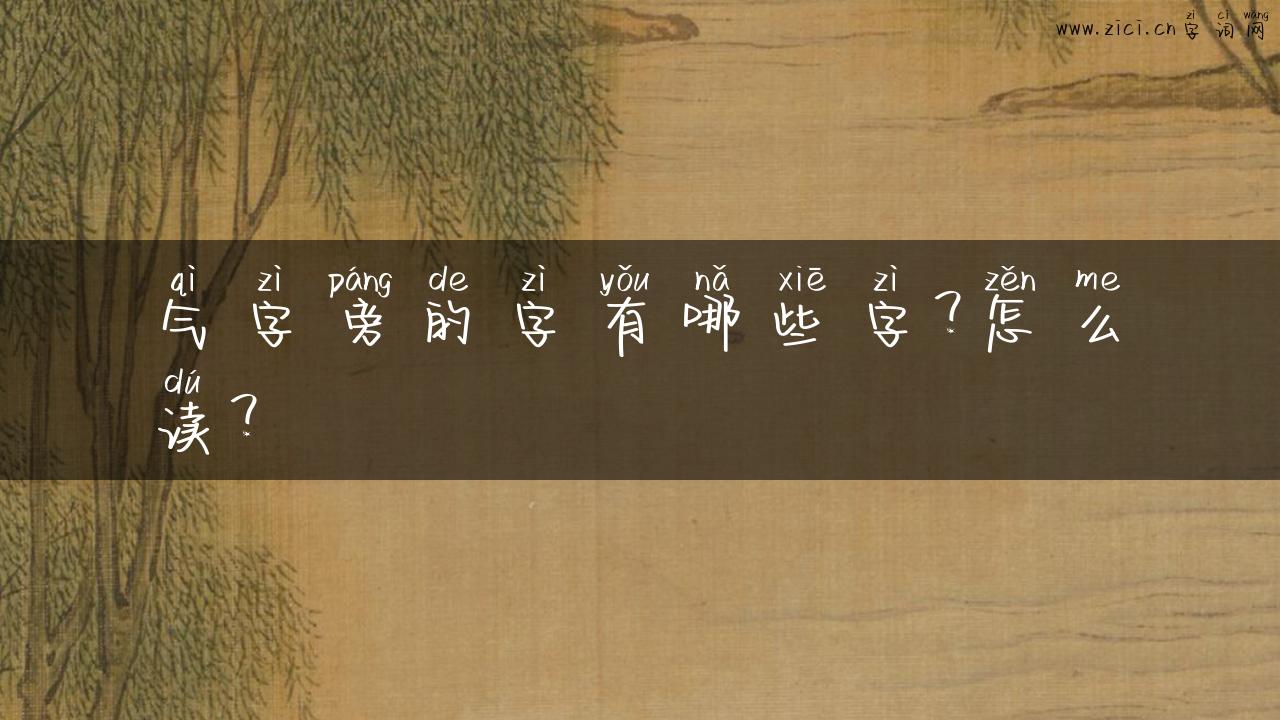 zì cí wǎng
www.zici.cn字词网
qì zì páng de zì yǒu nǎ xiē zì zěn me
气字旁的字有哪些字？怎么
dú
读？